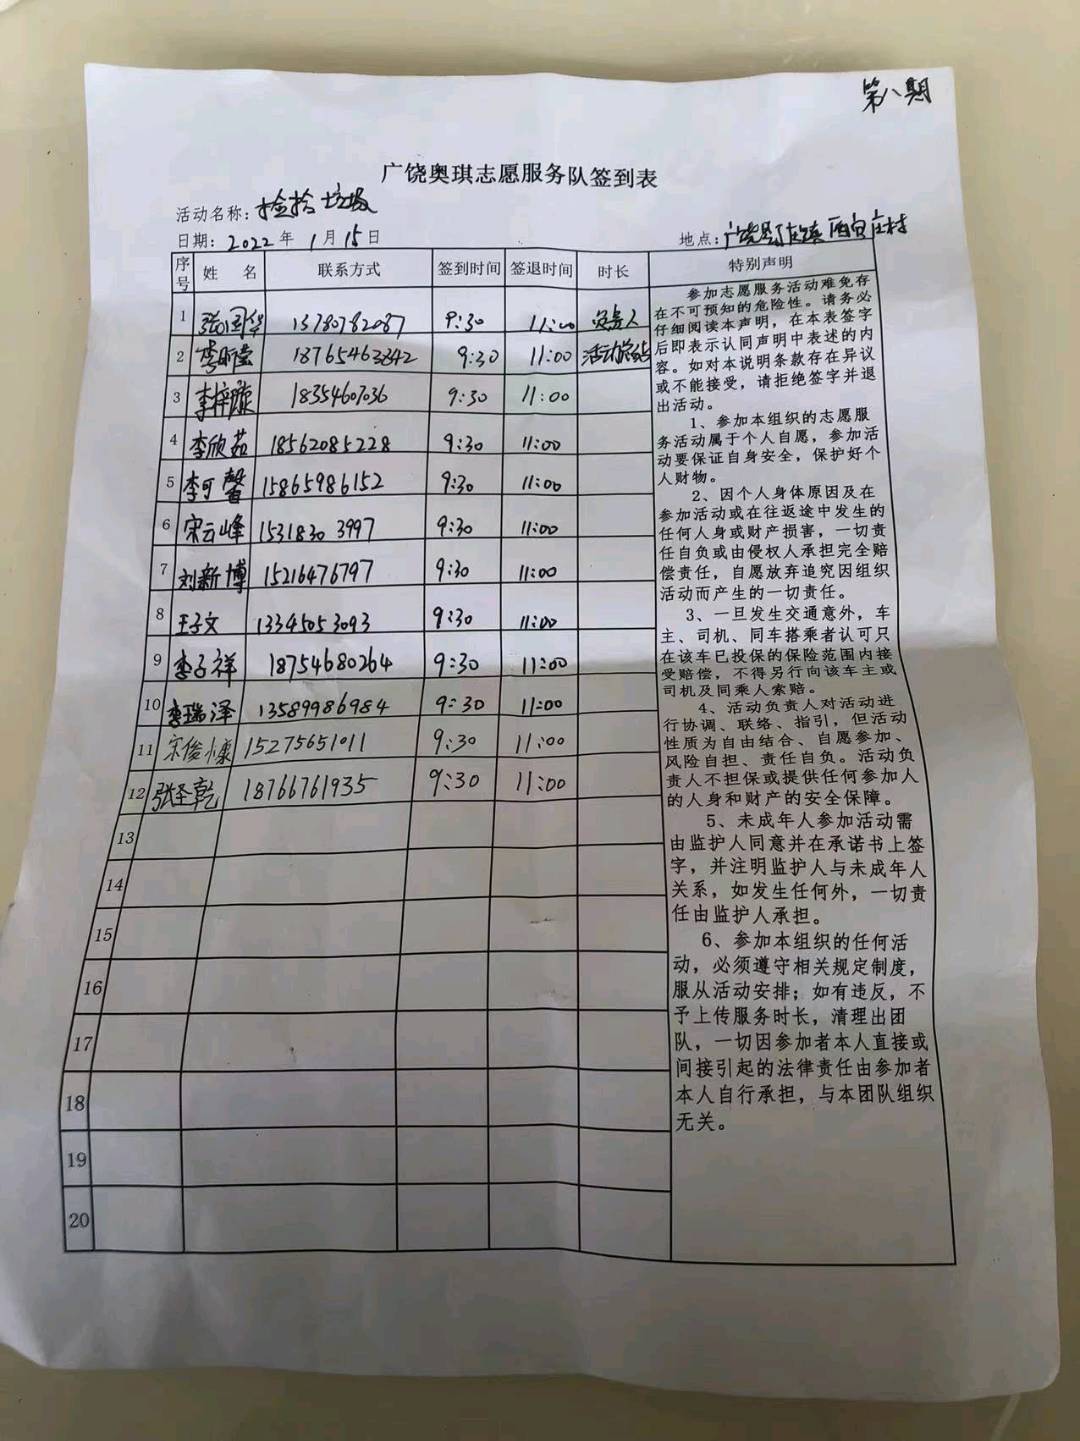 第八期
广饶奥琪志愿服务队签到表
活动名称：捡拾垃圾
日期：2022年1月15日
地点：广饶县
序号 姓名 联系方式 签到时间 签退时间 时长 特别声明
1 张国华 13780782087 9:30 11:00 负责人
2 18765463342 9:30 11:00
3 李梓璇 18354607036 9:30 11:00
4 李欣茹 18562085228 9:30 11:00
5 李可馨 15865986152 9:30 11:00
6 宋云峰 15318303997 9:30 11:00
7 刘新博 15216476797 9:30 11:00
8 王子文 13345053093 9:30 11:00
9 李子祥 18754680264 9:30 11:00
10 李瑞泽 13589986984 9:30 11:00
11 宋俊慷 15275651011 9:30 11:00
12 张圣乾 18766761935 9:30 11:00
13
14
15
16
17
18
19
20
参加志愿服务活动难免存
在不可预知的危险性。请务必
仔细阅读本声明，在本表签字
后即表示认同声明中表述的内
容。如对本说明条款存在异议
或不能接受，请拒绝签字并退
出活动。
1、参加本组织的志愿服
务活动属于个人自愿，参加活
动要保证自身安全，保护好个
人财物。
2、因个人身体原因及在
参加活动或在往返途中发生的
任何人身或财产损害，一切责
任自负或由侵权人承担完全赔
偿责任，自愿放弃追究因组织
活动而产生的一切责任。
3、一旦发生交通意外，车
主、司机、同车搭乘者认可只
在该车已投保的保险范围内接
受赔偿，不得另行向该车主或
司机及同乘人索赔。
4、活动负责人对活动进
行协调、联络、指引，但活动
性质为自由结合、自愿参加、
风险自担、责任自负。活动负
责人不担保或提供任何参加人
的人身和财产的安全保障。
5、未成年人参加活动需
由监护人同意并在承诺书上签
字，并注明监护人与未成年人
关系，如发生任何外，一切责
任由监护人承担。
6、参加本组织的任何活
动，必须遵守相关规定制度，
服从活动安排；如有违反，不
予上传服务时长，清理出团
队，一切因参加者本人直接或
间接引起的法律责任由参加者
本人自行承担，与本团队组织
无关。